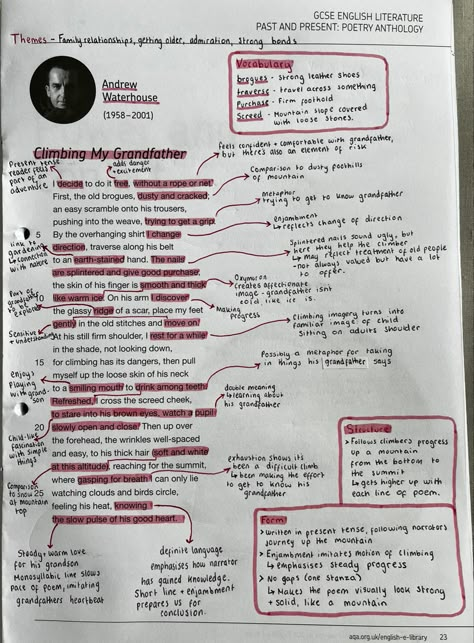 GCSE ENGLISH LITERATURE
PAST AND PRESENT: POETRY ANTHOLOGY
Themes - Family relationships, getting older, admiration, strong bonds
Andrew
Waterhouse
(1958–2001)
Vocabulary
brogues - strong leather shoes
traverse - travel across something
Purchase - Firm foothold
Screed - Mountain slope covered
with loose stones.
Climbing My Grandfather
I decide to do it free, without a rope or net.
First, the old brogues, dusty and cracked;
an easy scramble onto his trousers,
pushing into the weave, trying to get a grip.
5 By the overhanging shirt I change
direction, traverse along his belt
to an earth-stained hand. The nails
are splintered and give good purchase,
the skin of his finger is smooth and thick
like warm ice. On his arm I discover
the glassy ridge of a scar, place my feet
gently in the old stitches and move on.
At his still firm shoulder, I rest for a while
in the shade, not looking down,
15 for climbing has its dangers, then pull
myself up the loose skin of his neck
to a smiling mouth to drink among teeth.
Refreshed, I cross the screed cheek,
to stare into his brown eyes, watch a pupil
20 slowly open and close. Then up over
the forehead, the wrinkles well-spaced
and easy, to his thick hair (soft and white
at this altitude), reaching for the summit,
where gasping for breath I can only lie
25 watching clouds and birds circle,
feeling his heat, knowing
the slow pulse of his good heart.
Present tense
reader feels
part of an
adventure
adds danger
+ excitement
feels confident + comfortable with grandfather,
but there's also an element of risk
Comparison to dusty foothills
of mountain
Metaphor
trying to get to know grandfather
enjambment
↳ reflects change of direction
link to
gardening
connection
with nature
Splintered nails sound ugly, but
here they help the climber
↳ may reflect treatment of old people
- not always valued but have a lot
to offer.
Oxymoron
creates affectionate
image - grandfather isn't
cold, like ice is.
Part of
grandfather
to be
explored
Making
progress
Sensitive
+ understanding
Climbing imagery turns into
familiar image of child
sitting on adults shoulder
Possibly a metaphor for taking
in things his grandfather says
Enjoys
Playing
with grand-
son
double meaning
↳ learning about
his grandfather
Child-like
fascination
with simple
things
Comparison
to snow
at mountain
top
exhaustion shows it's
been a difficult climb
↳ been making the effort
to get to know his
grandfather
Structure
> Follows climbers progress
up a mountain
from the bottom to
the summit
↳ gets higher up with
each line of poem.
Form
> Written in present tense, following narrators
journey up the mountain
> Enjambment imitates motion of climbing
↳ emphasises steady progress
> No gaps (one stanza)
↳ Makes the poem visually look strong
+ solid, like a mountain
Steady + warm love
for his grandson
Monosyllabic line slows
pace of poem, imitating
grandfathers heartbeat
definite language
emphasises how narrator
has gained knowledge.
Short line + enjambment
prepares us for
conclusion.
aqa.org.uk/english-e-library 23